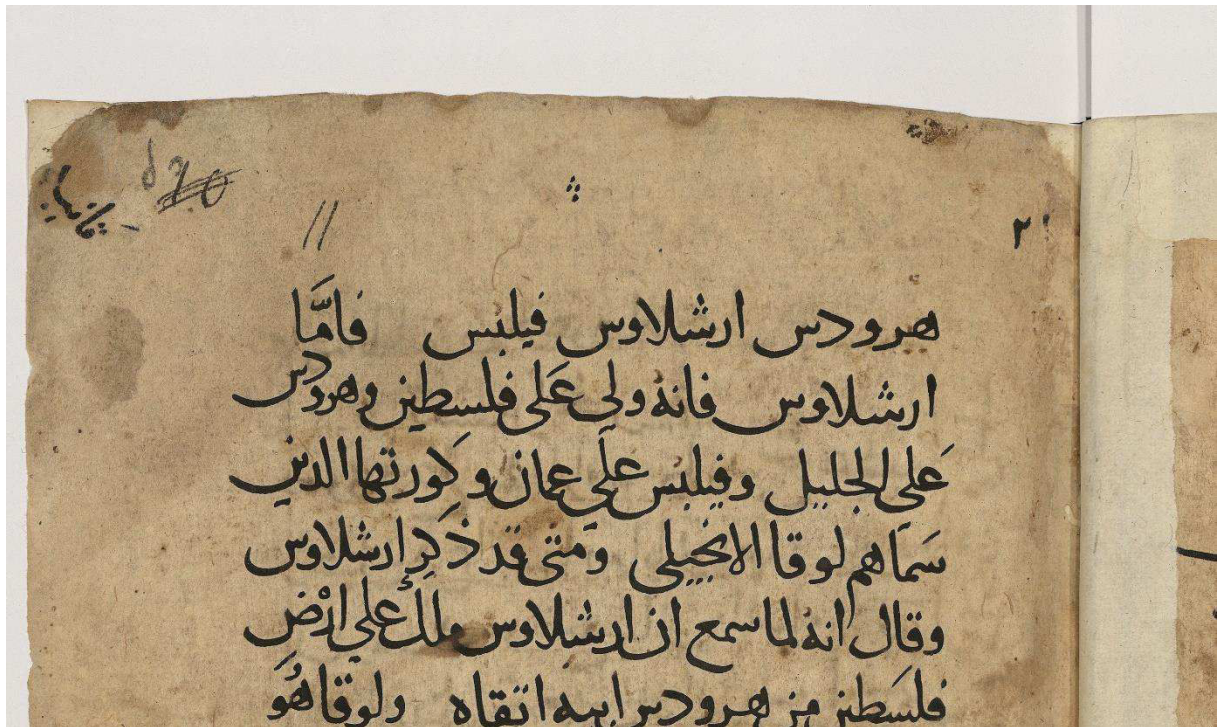 ٢
هرودس ارشلاوس فيلبس فامَّا
ارشلاوس فانه ولي عَلى فلسطين وهرودس
عَلي الجليل وفيلبس علَي عمان وكورتها الدين
سَماهم لوقا الانجيلى ومتى قد ذكر ارشلاوس
وقال انه لما سمع ان ارشلاوس ملك علي ارْضِ
فلسَطين من هرودس ابيه اتقاه ولوقا هُوَ